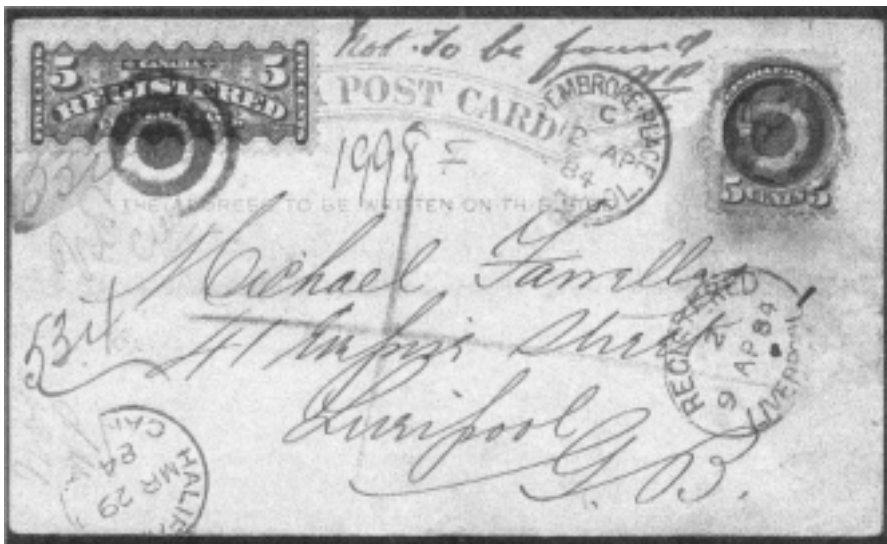 Not to be found
5 CANADA 5
REGISTERED
POST CARD
PEMBROKE PLACE
C
AP
84
L'POOL
1998
5 CENTS 5
THE ADDRESS TO BE WRITTEN ON THIS SIDE
Michael Farrelly
REGISTERED
9 AP 84
LIVERPOOL
534
41 Street
Liverpool
G. B.
HALIFAX
MR 29
84
CAN